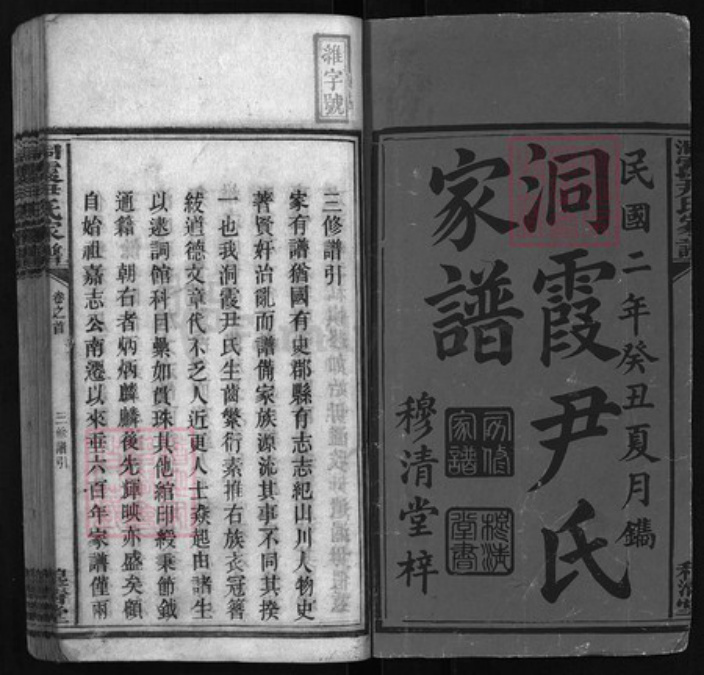 民國二年癸丑夏月鐫
洞霞尹氏
家譜
穆清堂梓
雜字號
三修譜引
家有譜猶國有史郡縣有志志紀山川人物史
著賢奸治亂而譜備家族源流其事不同其揆
一也我洞霞尹氏生齒繁衍素推右族衣冠簪
紱道德文章代不乏人近更人士猋起由諸生
以逮詞館科目纍如貫珠其他綰印綬秉節鉞
通籍 朝右者炳炳麟麟後先輝映亦盛矣顧
自始祖嘉志公南遷以來垂六百年家譜僅兩
洞霞尹氏家譜
卷之首
三修譜引